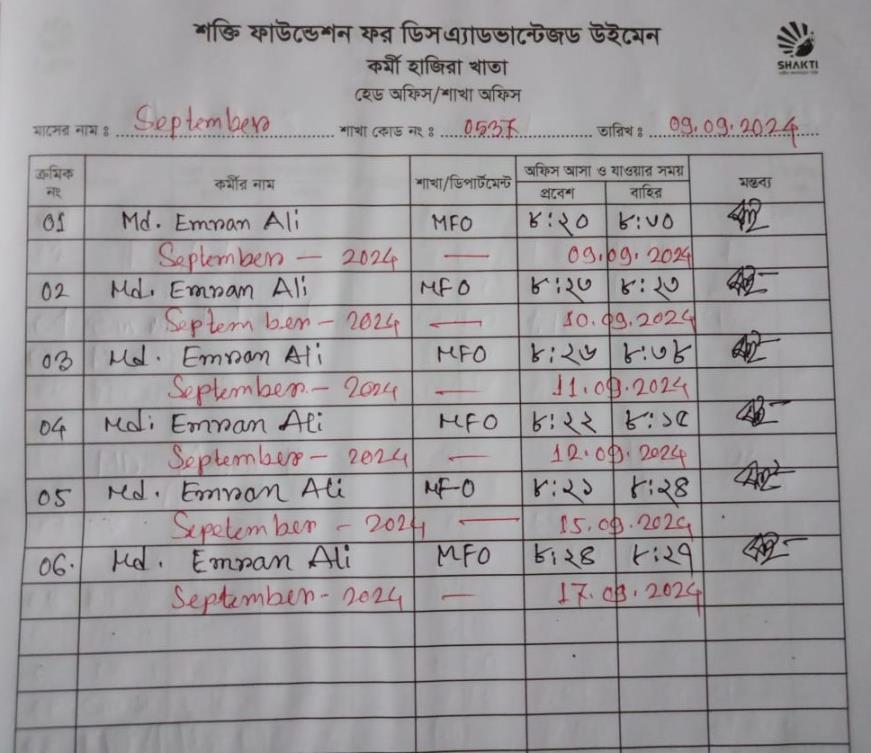 শক্তি ফাউন্ডেশন ফর ডিসএ্যাডভান্টেজড উইমেন
SHAKTI
কর্মী হাজিরা খাতা
হেড অফিস/শাখা অফিস
মাসের নাম : September শাখা কোড নং : 0537 তারিখ : 09.09.2024
ক্রমিক নং কর্মীর নাম শাখা/ডিপার্টমেন্ট অফিস আসা ও যাওয়ার সময় মন্তব্য
প্রবেশ বাহির
01 Md. Emran Ali MFO ৮:২০ ৮:৩০
September — 2024 — 09.09.2024
02 Md. Emran Ali MFO ৮:২৩ ৮:২৩
September - 2024 — 10.09.2024
03 Md. Emran Ali MFO ৮:২৬ ৮:৩৮
September - 2024 — 11.09.2024
04 Md. Emran Ali MFO ৮:২২ ৮:১৫
September - 2024 — 12.09.2024
05 Md. Emran Ali MFO ৮:২১ ৮:২৪
Sepetember - 2024 — 15.09.2024
06. Md. Emran Ali MFO ৮:২৪ ৮:২৭
September - 2024 — 17.09.2024